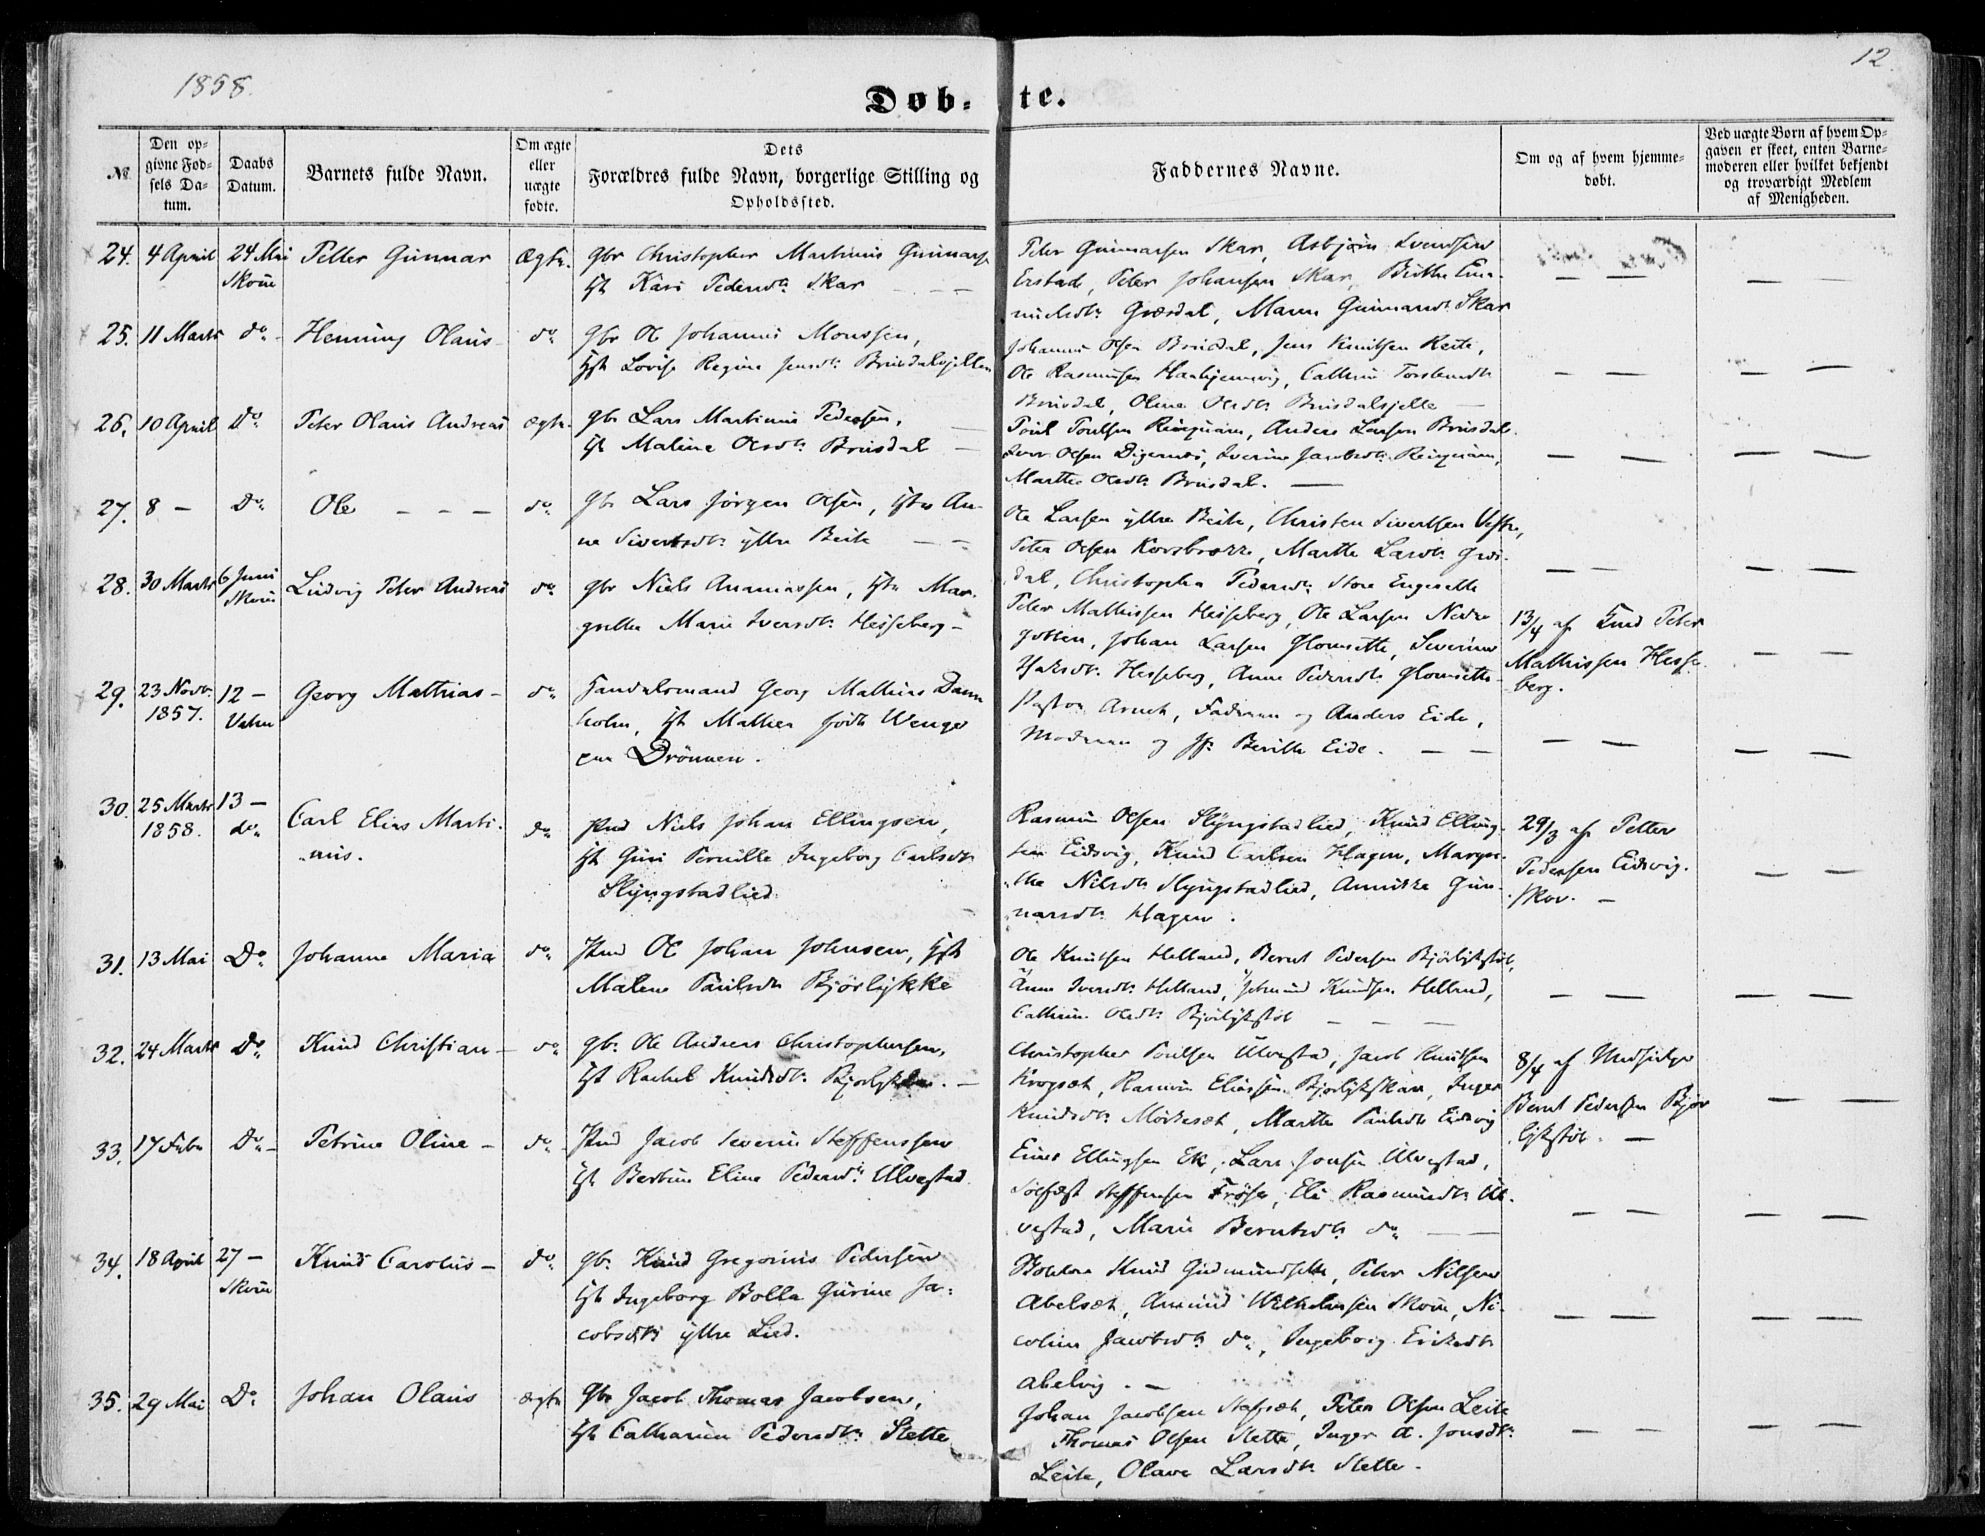 1858.
12
Døb-te.
No
Den opgivne Fødsels Datum.
Daabs Datum.
Barnets fulde Navn.
Om ægte eller uægte fødte.
Dets Forældres fulde Navn, borgerlige Stilling og Opholdssted.
Faddernes Navne.
Om og af hvem hjemmedøbt.
Ved uægte Børn af hvem Opgaven er skeet, enten Barnemoderen eller hvilket bekjendt og troværdigt Medlem af Menigheden.
24. 4 April 24 Mai Petter Gunnar Ægte. gbr Christopher Martinus Gunnars
Skoue Kari Pedersdtr Skar
Peter Gunnarsen Skar, Asbjørn Svendsen
Erstad, Peter Johansen Skar, Birthe
Græsdal, Maren Gunnarsdt Skar
25. 11 Marts do Henning Olaus do gbr Ole Johannes Monssen,
Lovise Regine Jensdtr Brusdalsjellen
Johannes Olsen Brusdal, Jens Knutsen Reite,
Ole Rasmussen Cathrine
Brusdal, Oline Olsdtr Brusdalsjelle
26. 10 April Do Peter Olaus Andreas ægte. gbr Lars Martinus Pedersen,
Maline Olsdtr Brusdal
Poul Poulsen Anders Larsen Brusdal.
Iver Olsen Digernes, Iverine Jacobsdtr
Marthe Olsdtr Brusdal.
27. 8 – Do Ole do gbr Lars Jørgen Olsen, An-
ne Sivertsdtr yttre Beite
Ole Larsen yttre Beite, Christen Sivertsen
Peter Olsen Korsbrække, Marthe Larsdtr
dal, Christopha Pedersdtr Store Engesette
28. 30 Marts 6 Juni Skoue Ludvig Peter Andreas do gbr Niels Ananiassen, Mar-
grethe Marie Iversdtr Hesseberg
Peter Mathissen Hesseberg, Ole Larsen Nedre
Johan Larsen Glomsette, Severine
Hesseberg, Anne Pedersdtr Glomsette
13/4 af Peter
Mathissen Hesse-
berg.
29. 23 Novbr 1857. 12 – Vatne Georg Mathias do Handelsmand Georg Mathias Dann
holm, Mathea født Wenger
paa Drønnen.
Pastor Fadderen og Anders Eide,
Moderen og Beritte Eide.
30. 25 Marts 1858. 13 – do Carl Elias Marti-
nus. do Niels Johan Ellingsen,
Guri Pernille Ingeborg Carlsdtr
Slyngstadlied
Rasmus Olsen Slyngstadlied, Knud Elling-
sen Eidsvig, Knud Carlsen Hagen, Margre-
the Nilsdtr Slyngstadlied, Annikke Gun-
narsdtr Hagen.
29/3 af Petter
Pedersen Eidsvig-
skov.
31. 13 Mai Do Johanne Maria do Ole Johan Johnsen,
Malene Paulsdtr Bjørlykke
Ole Knutsen Helland, Bernt Pedersen Bjørlykstøl,
Anne Iversdtr Helland, Knudsen Helland,
Cathrine Olsdtr Bjørlykstøl
32. 24 Marts Do Knud Christian do gbr Ole Andreas Christophersen,
Rachel Knudsdtr
Christopher Poulsen Ulvestad, Jacob Knutsen
Krogsæt, Rasmus Eliassen Bjørlykskar, Inger
Knudsdtr Mørkesæt, Marthe Paulsdtr Eidsvig
8/4 af
Bernt Pedersen Bjør
lykstøl.
33. 17 Febr Do Petrine Oline do Jacob Severin Steffenssen
Bertine Eline Pedersdtr Ulvestad
Ellingsen Ek, Lars Jonsen Ulvestad,
Steffensen Eli Rasmusdtr Ul-
vestad, Marie Berntsdtr do
34. 18 April 27 – Skoue Knud Carolus do gbr Knud Gregorius Pedersen
Ingeborg Bolla Gurine Ja-
cobsdtr yttre Lied.
Knud Peter Nilsen
Abelsæt, Amund Wilhelmsen Skoue, Ni-
coline Jacobsdtr do, Ingeborg Eriksdtr
Abelvig.
35. 29 Mai Do Johan Olaus ægte gbr Jacob Thomas Jacobsen,
Catharine Pedersdtr Slette
Johan Jacobsen Peter Olsen Leite
Thomas Olsen Slette, Inger A. Jonsdtr
Leite, Olave Larsdtr Slette.